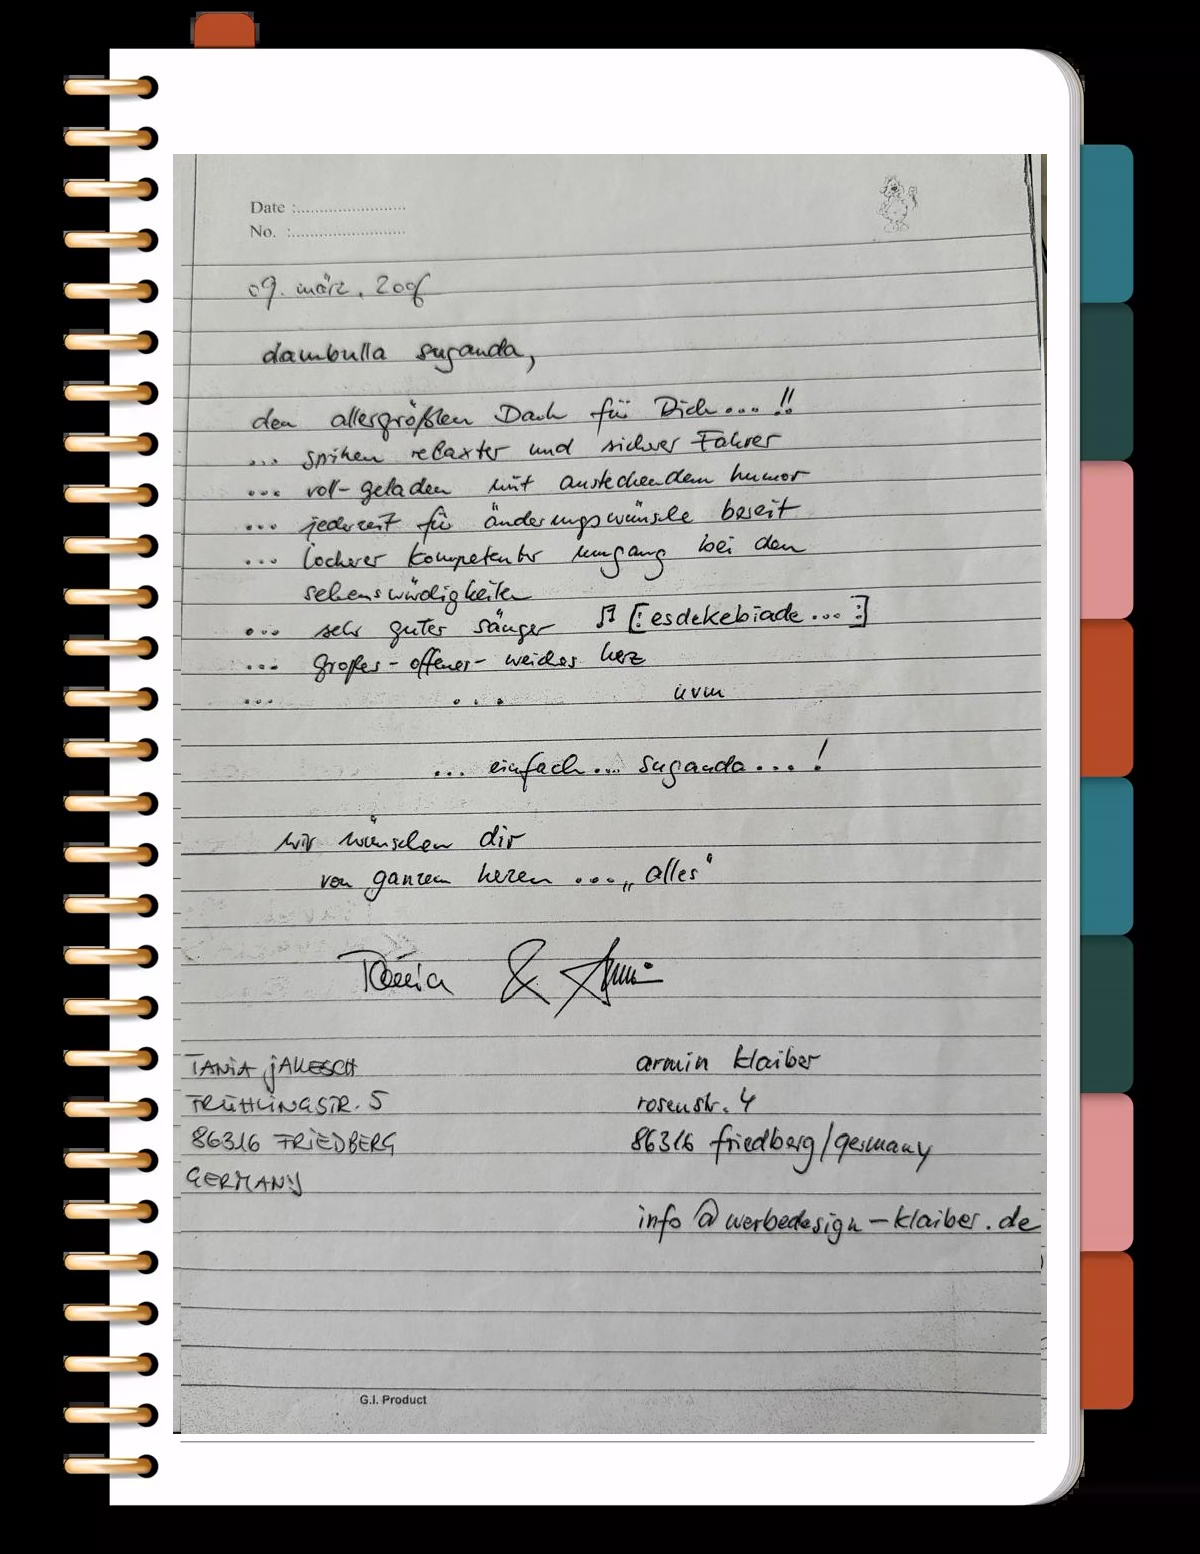 Date :........................
No. :..........................
09. märz. 2006
dambulla suganda,
den allergrößten Dank für Dich... !!
... spitzen relaxter und sicherer Fahrer
... voll-geladen mit ansteckendem humor
... jederzeit für änderungswünsche bereit
... lockerer kompetenter umgang bei den
sehenswürdigkeiten
... sehr guter sänger ♫ [: esdekebiade ... :]
... großes - offenes - weiches herz
... ... uvm
... einfach ... suganda ... !
wir wünschen dir
von ganzem herzen ... „alles“
Tania & Armin
TANIA jAKESCH armin klaiber
FRÜHLINGSTR. 5 rosenstr. 4
86316 FRIEDBERG 86316 friedberg/germany
GERMANY
info @ werbedesign-klaiber.de
G.I. Product